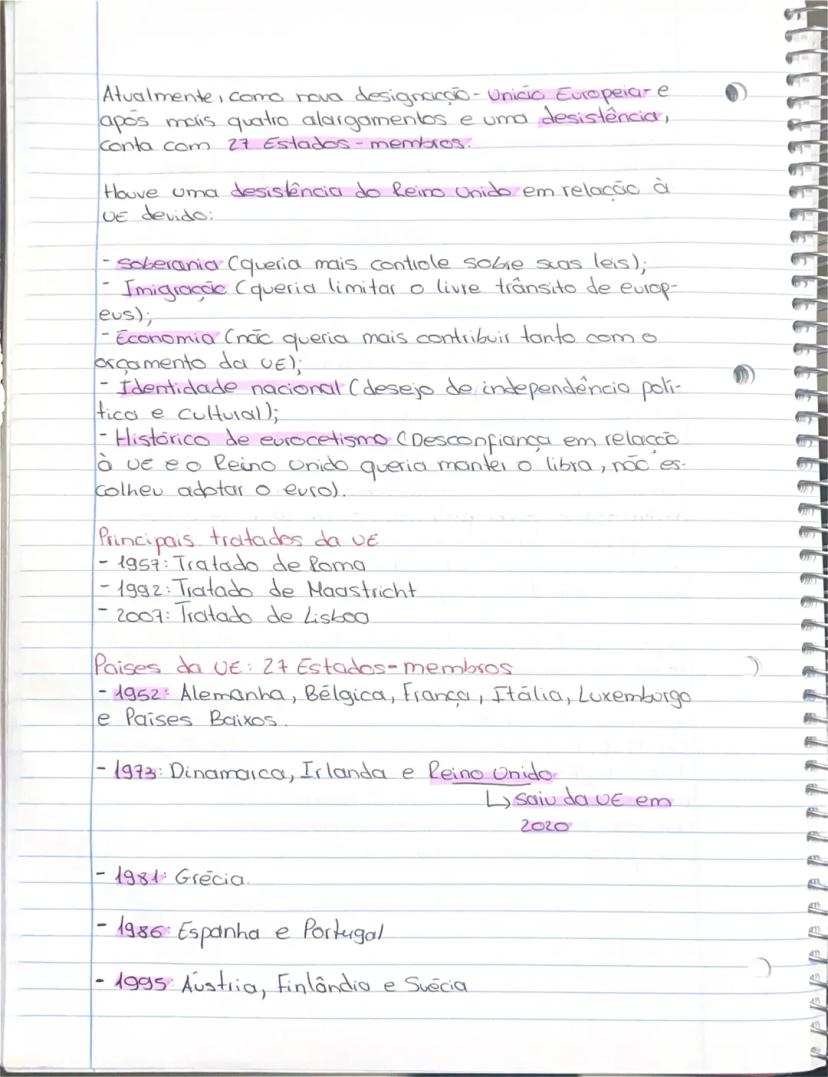 Atualmente, como nova designacção - União Europeia - e
após mais quatro alargamentos e uma desistência,
conta com 27 Estados-membros.
Houve uma desistência do Reino Unido em relação à
UE devido:
- soberania (queria mais controle sobre suas leis);
- Imigração (queria limitar o livre trânsito de europ-
eus);
- Economia (não queria mais contribuir tanto com o
orçamento da UE);
- Identidade nacional (desejo de independência polí-
tica e cultural);
- Histórico de eurocetismo (Desconfiança em relação
à UE e o Reino Unido queria manter o libra, não es-
colheu adotar o euro).
Principais tratados da UE
- 1957: Tratado de Roma
- 1992: Tratado de Maastricht
- 2007: Tratado de Lisboa
Países da UE: 27 Estados-membros
- 1952: Alemanha, Bélgica, França, Itália, Luxemburgo
e Países Baixos.
- 1973: Dinamarca, Irlanda e Reino Unido
↳ saiu da UE em
2020
- 1981: Grécia.
- 1986: Espanha e Portugal
- 1995: Áustria, Finlândia e Suécia